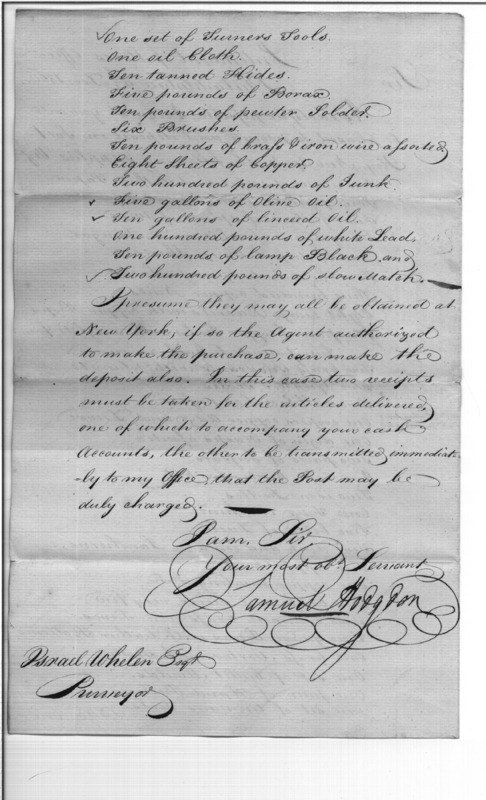 One set of Turners Tools.
One oil Cloth.
Ten tanned Hides.
Five pounds of Borax
Ten pounds of pewter Solder.
Six Brushes.
Ten pounds of brass & iron wire assorted
Eight Sheets of Copper.
Two hundred pounds of Junk.
Five gallons of Olive Oil.
Ten gallons of linceed Oil.
One hundred pounds of white Lead,
Ten pounds of lamp Black and
Two hundred pounds of slow Match.
I presume they may all be obtained at
New York, if so the Agent authorized
to make the purchase, can make the
deposit also. In this case two receipts
must be taken for the articles delivered,
one of which to accompany your cash
Accounts, the other to be transmitted immediat-
-ly to my Office, that the Post may be
duly charged.
I am, Sir
Your most obt. Servant
Samuel Hodgdon
Israel Whelen Esqr.
Purveyor